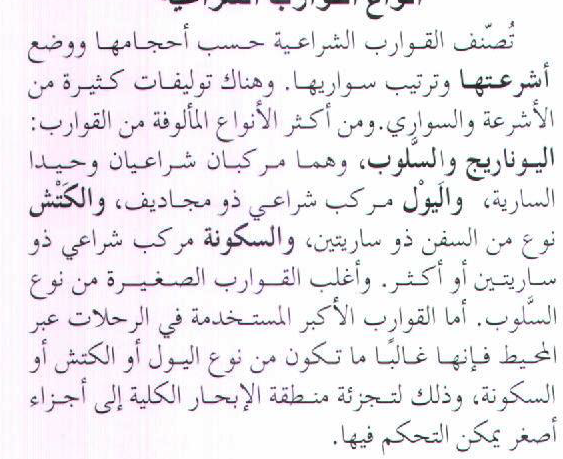 أنواع القوارب الشراعية
تُصنّف القوارب الشراعية حسب أحجامها ووضع
أشرعتها وترتيب سواريها. وهناك توليفات كثيرة من
الأشرعة والسواري. ومن أكثر الأنواع المألوفة من القوارب:
اليوناريج والسلُوب، وهما مركبان شراعيان وحيدا
السارية، واليَوْل مركب شراعي ذو مجاديف، والكَتْش
نوع من السفن ذو ساريتين، والسكونة مركب شراعي ذو
ساريتين أو أكثر. وأغلب القوارب الصغيرة من نوع
السلُوب. أما القوارب الأكبر المستخدمة في الرحلات عبر
المحيط فإنها غالبًا ما تكون من نوع اليول أو الكتش أو
السكونة، وذلك لتجزئة منطقة الإبحار الكلية إلى أجزاء
أصغر يمكن التحكم فيها.